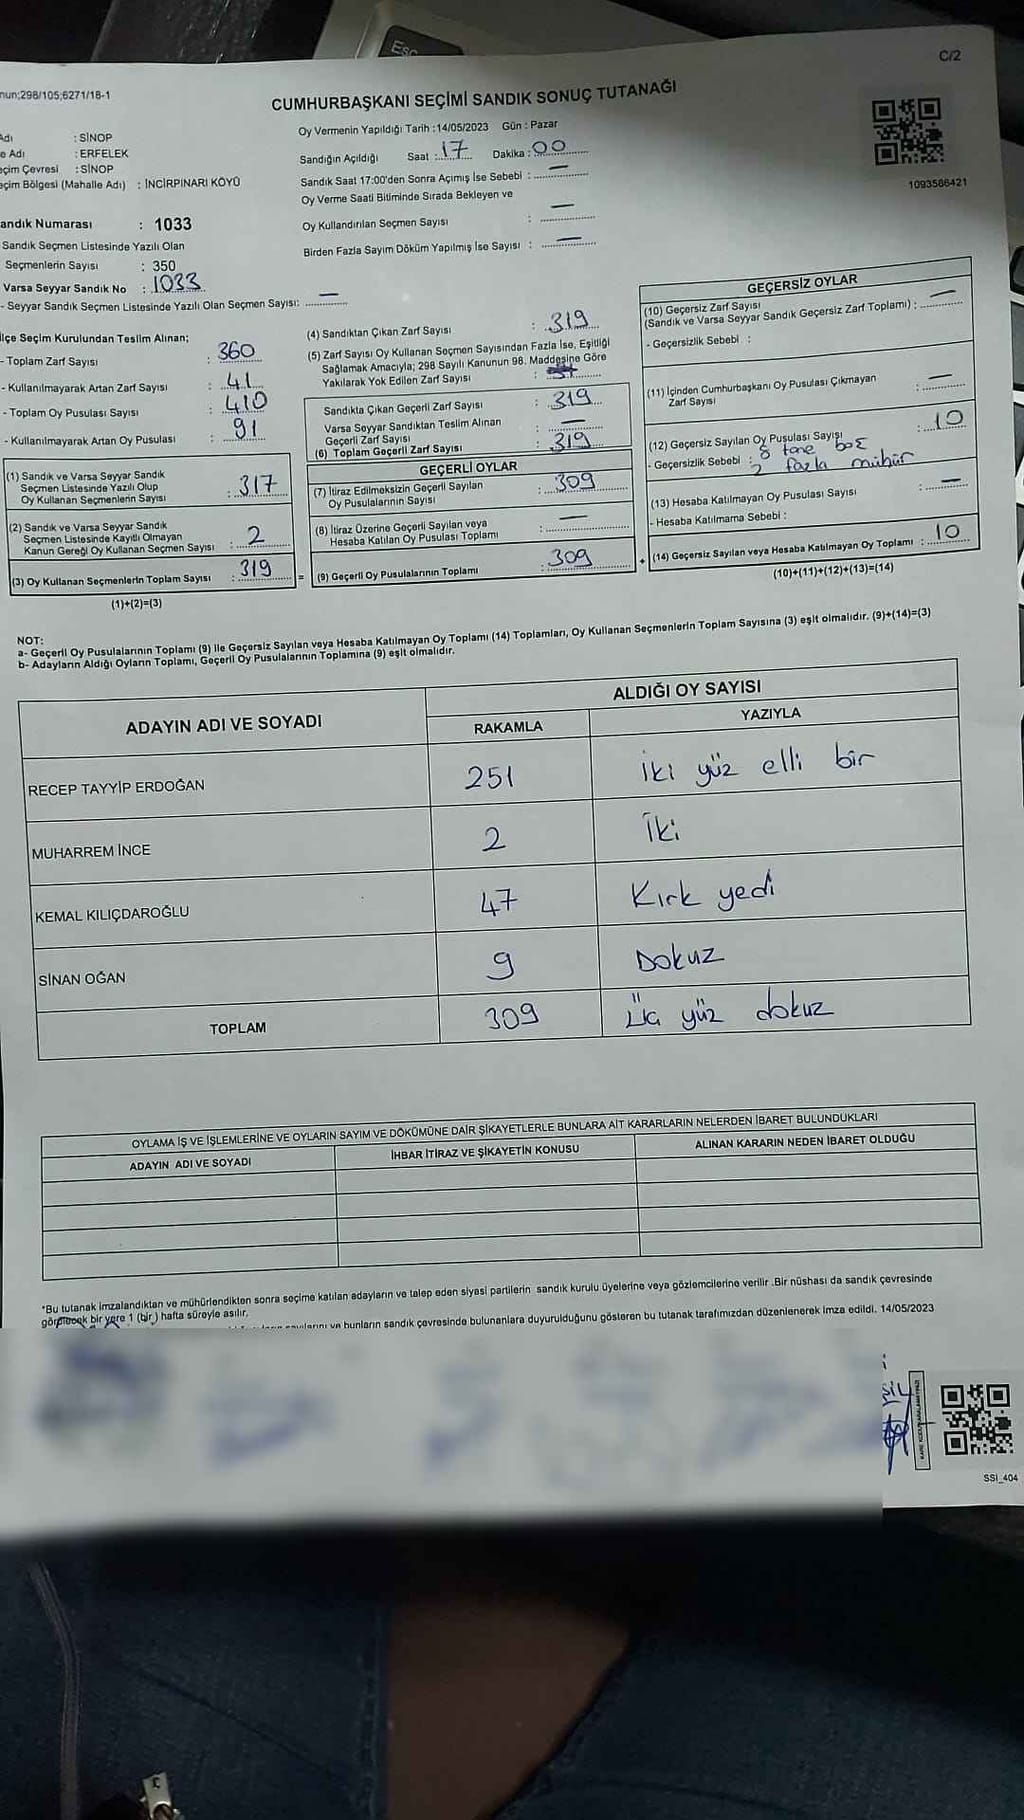 Esc
C/2
nun;298/105;6271/18-1
CUMHURBAŞKANI SEÇİMİ SANDIK SONUÇ TUTANAĞI
Adı : SİNOP
e Adı : ERFELEK
eçim Çevresi : SİNOP
eçim Bölgesi (Mahalle Adı) : İNCİRPINARI KÖYÜ
Oy Vermenin Yapıldığı Tarih :14/05/2023 Gün : Pazar
Sandığın Açıldığı Saat : 17 Dakika : 00
Sandık Saat 17:00'den Sonra Açımış İse Sebebi : —
Oy Verme Saati Bitiminde Sırada Bekleyen ve
Oy Kullandırılan Seçmen Sayısı : —
Birden Fazla Sayım Döküm Yapılmış İse Sayısı : —
1093586421
andık Numarası : 1033
Sandık Seçmen Listesinde Yazılı Olan
Seçmenlerin Sayısı : 350
Varsa Seyyar Sandık No : 1033
- Seyyar Sandık Seçmen Listesinde Yazılı Olan Seçmen Sayısı: —
lçe Seçim Kurulundan Teslim Alınan;
- Toplam Zarf Sayısı : 360
- Kullanılmayarak Artan Zarf Sayısı : 41
- Toplam Oy Pusulası Sayısı : 410
- Kullanılmayarak Artan Oy Pusulası : 91
(1) Sandık ve Varsa Seyyar Sandık
Seçmen Listesinde Yazılı Olup
Oy Kullanan Seçmenlerin Sayısı : 317
(2) Sandık ve Varsa Seyyar Sandık
Seçmen Listesinde Kayıtlı Olmayan
Kanun Gereği Oy Kullanan Seçmen Sayısı : 2
(3) Oy Kullanan Seçmenlerin Toplam Sayısı : 319
(1)+(2)=(3)
(4) Sandıktan Çıkan Zarf Sayısı : 319
(5) Zarf Sayısı Oy Kullanan Seçmen Sayısından Fazla İse, Eşitliği
Sağlamak Amacıyla; 298 Sayılı Kanunun 98. Maddesine Göre
Yakılarak Yok Edilen Zarf Sayısı :
Sandıkta Çıkan Geçerli Zarf Sayısı : 319
Varsa Seyyar Sandıktan Teslim Alınan
Geçerli Zarf Sayısı : —
(6) Toplam Geçerli Zarf Sayısı : 319
GEÇERLİ OYLAR
(7) İtiraz Edilmeksizin Geçerli Sayılan
Oy Pusulalarının Sayısı : 309
(8) İtiraz Üzerine Geçerli Sayılan veya
Hesaba Katılan Oy Pusulası Toplamı : —
= (9) Geçerli Oy Pusulalarının Toplamı : 309
GEÇERSİZ OYLAR
(10) Geçersiz Zarf Sayısı
(Sandık ve Varsa Seyyar Sandık Geçersiz Zarf Toplamı) : —
- Geçersizlik Sebebi :
(11) İçinden Cumhurbaşkanı Oy Pusulası Çıkmayan
Zarf Sayısı : —
(12) Geçersiz Sayılan Oy Pusulası Sayısı : 10
- Geçersizlik Sebebi : 8 tane boş
2 fazla mühür
(13) Hesaba Katılmayan Oy Pusulası Sayısı : —
- Hesaba Katılmama Sebebi :
+ (14) Geçersiz Sayılan veya Hesaba Katılmayan Oy Toplamı : 10
(10)+(11)+(12)+(13)=(14)
NOT:
a- Geçerli Oy Pusulalarının Toplamı (9) ile Geçersiz Sayılan veya Hesaba Katılmayan Oy Toplamı (14) Toplamları, Oy Kullanan Seçmenlerin Toplam Sayısına (3) eşit olmalıdır. (9)+(14)=(3)
b- Adayların Aldığı Oyların Toplamı, Geçerli Oy Pusulalarının Toplamına (9) eşit olmalıdır.
ADAYIN ADI VE SOYADI
ALDIĞI OY SAYISI
RAKAMLA YAZIYLA
RECEP TAYYİP ERDOĞAN 251 İki yüz elli bir
MUHARREM İNCE 2 İki
KEMAL KILIÇDAROĞLU 47 Kırk yedi
SİNAN OĞAN 9 Dokuz
TOPLAM 309 Üç yüz dokuz
OYLAMA İŞ VE İŞLEMLERİNE VE OYLARIN SAYIM VE DÖKÜMÜNE DAİR ŞİKAYETLERLE BUNLARA AİT KARARLARIN NELERDEN İBARET BULUNDUKLARI
ADAYIN ADI VE SOYADI İHBAR İTİRAZ VE ŞİKAYETİN KONUSU ALINAN KARARIN NEDEN İBARET OLDUĞU
*Bu tutanak imzalandıktan ve mühürlendikten sonra seçime katılan adayların ve talep eden siyasi partilerin sandık kurulu üyelerine veya gözlemcilerine verilir .Bir nüshası da sandık çevresinde
görülecek bir yere 1 (bir) hafta süreyle asılır.
ve bunların sandık çevresinde bulunanlara duyurulduğunu gösteren bu tutanak tarafımızdan düzenlenerek imza edildi. 14/05/2023
SSİ_404